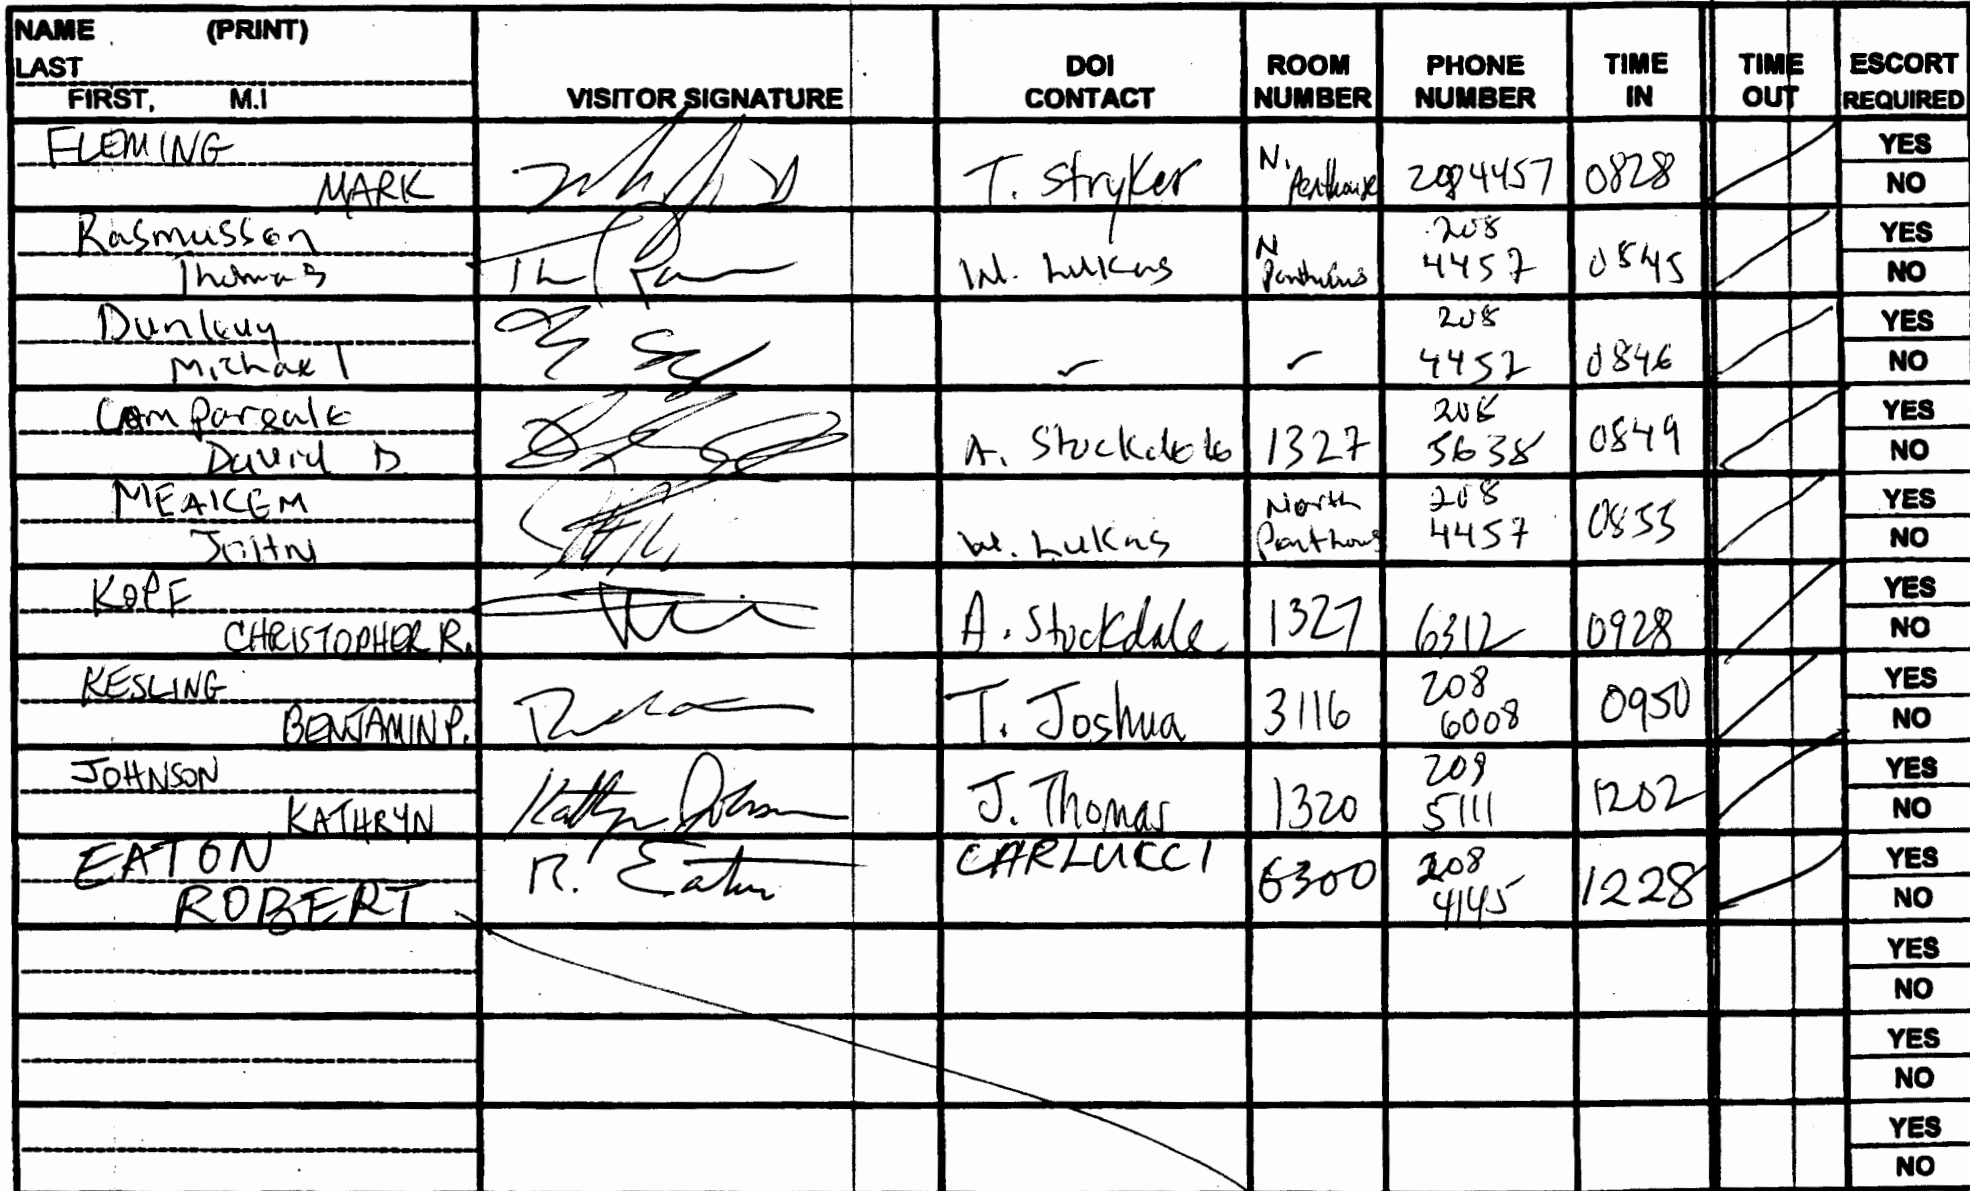 NAME (PRINT)
LAST
FIRST, M.I
VISITOR SIGNATURE
DOI CONTACT
ROOM NUMBER
PHONE NUMBER
TIME IN
TIME OUT
ESCORT REQUIRED
FLEMING
MARK
T. Stryker
N. Penthouse
208 4457
0828
YES
NO
Rasmussen
Thomas
W. Lukas
N
208
4457
0845
YES
NO
Michael
208
4457
0846
YES
NO
David D
A. Stockdale
1327
208
5638
0849
YES
NO
MEAKEM
JOHN
W. Lukas
North
208
4457
0855
YES
NO
KOPF
CHRISTOPHER R.
A. Stockdale
1327
6312
0928
YES
NO
KESLING
BENJAMIN P.
T. Joshua
3116
208
6008
0950
YES
NO
JOHNSON
KATHRYN
Kathryn Johnson
J. Thomas
1320
208
5111
1202
YES
NO
EATON
ROBERT
R. Eaton
CARLUCCI
6300
208
4145
1228
YES
NO
YES
NO
YES
NO
YES
NO